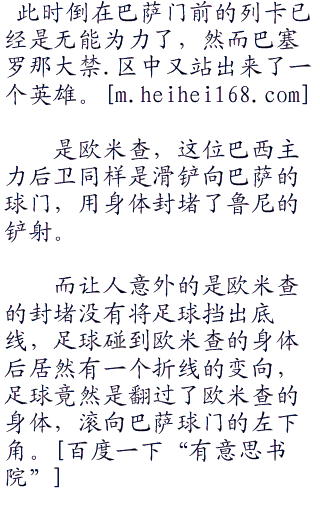 此时倒在巴萨门前的列卡已
经是无能为力了，然而巴塞
罗那大禁.区中又站出来了一
个英雄。[m.heihei168.com]
是欧米查，这位巴西主
力后卫同样是滑铲向巴萨的
球门，用身体封堵了鲁尼的
铲射。
而让人意外的是欧米查
的封堵没有将足球挡出底
线，足球碰到欧米查的身体
后居然有一个折线的变向，
足球竟然是翻过了欧米查的
身体，滚向巴萨球门的左下
角。[百度一下“有意思书
院”]